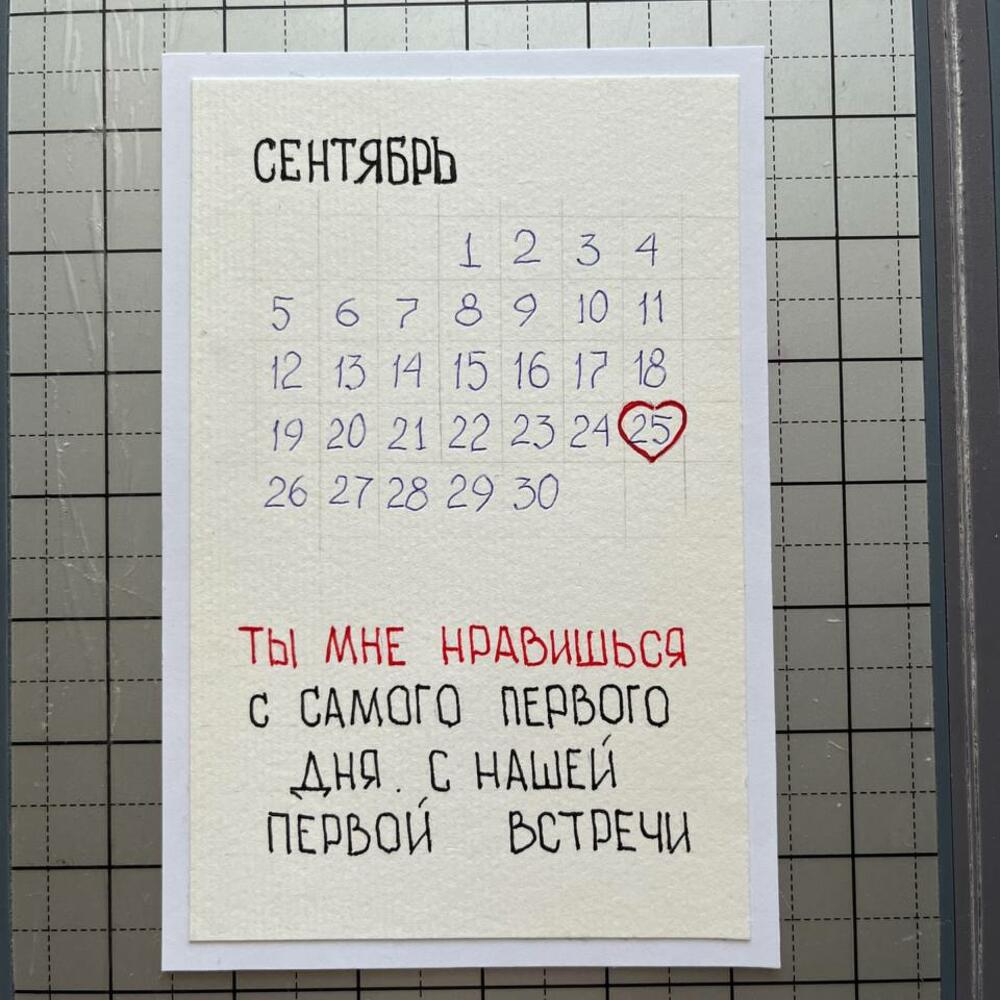 СЕНТЯБРЬ
1 2 3 4
5 6 7 8 9 10 11
12 13 14 15 16 17 18
19 20 21 22 23 24 25
26 27 28 29 30
ТЫ МНЕ НРАВИШЬСЯ
С САМОГО ПЕРВОГО
ДНЯ. С НАШЕЙ
ПЕРВОЙ ВСТРЕЧИ